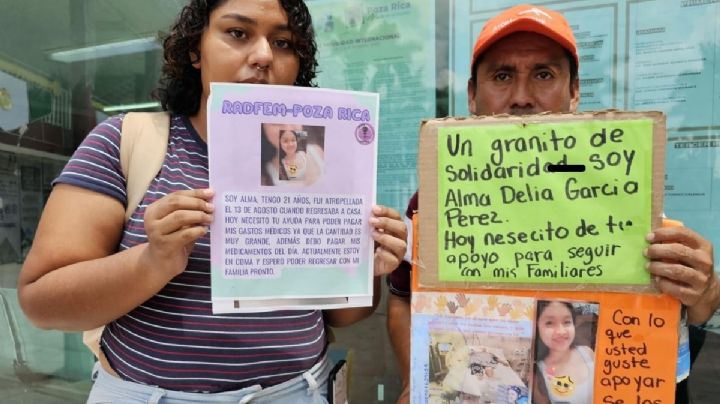 Poza Rica
RADFEM-POZA RICA
SOY ALMA, TENGO 21 AÑOS, FUI ATROPELLADA
EL 13 DE AGOSTO CUANDO REGRESABA A CASA.
HOY NECESITO TU AYUDA PARA PODER PAGAR
MIS GASTOS MÉDICOS YA QUE LA CANTIDAD ES
MUY GRANDE, ADEMÁS DEBO PAGAR MIS
MEDICAMENTOS DEL DÍA. ACTUALMENTE ESTOY
EN COMA Y ESPERO PODER REGRESAR CON MI
FAMILIA PRONTO.
Un granito de
Solidaridad soy
Alma Delia Garcia
Perez.
Hoy nesecito de tu
apoyo para seguir
con mis Familiares
Con lo
que
usted
guste
apoyar
se los